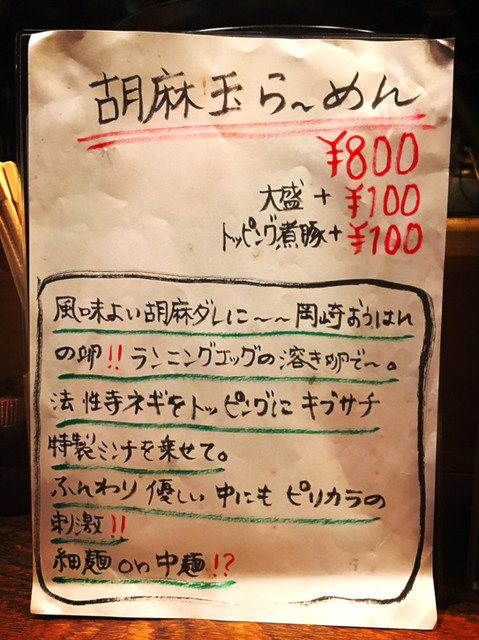 胡麻玉ら～めん
¥800
大盛+¥100
トッピング煮豚+¥100
風味よい胡麻ダレに～～岡崎おうはん
の卵!!ランニングエッグの溶き卵で～。
法性寺ネギをトッピングにキブサチ
特製ミンチを乗せて。
ふんわり優しい中にもピリカラの
刺激!!
細麺on中麺!?